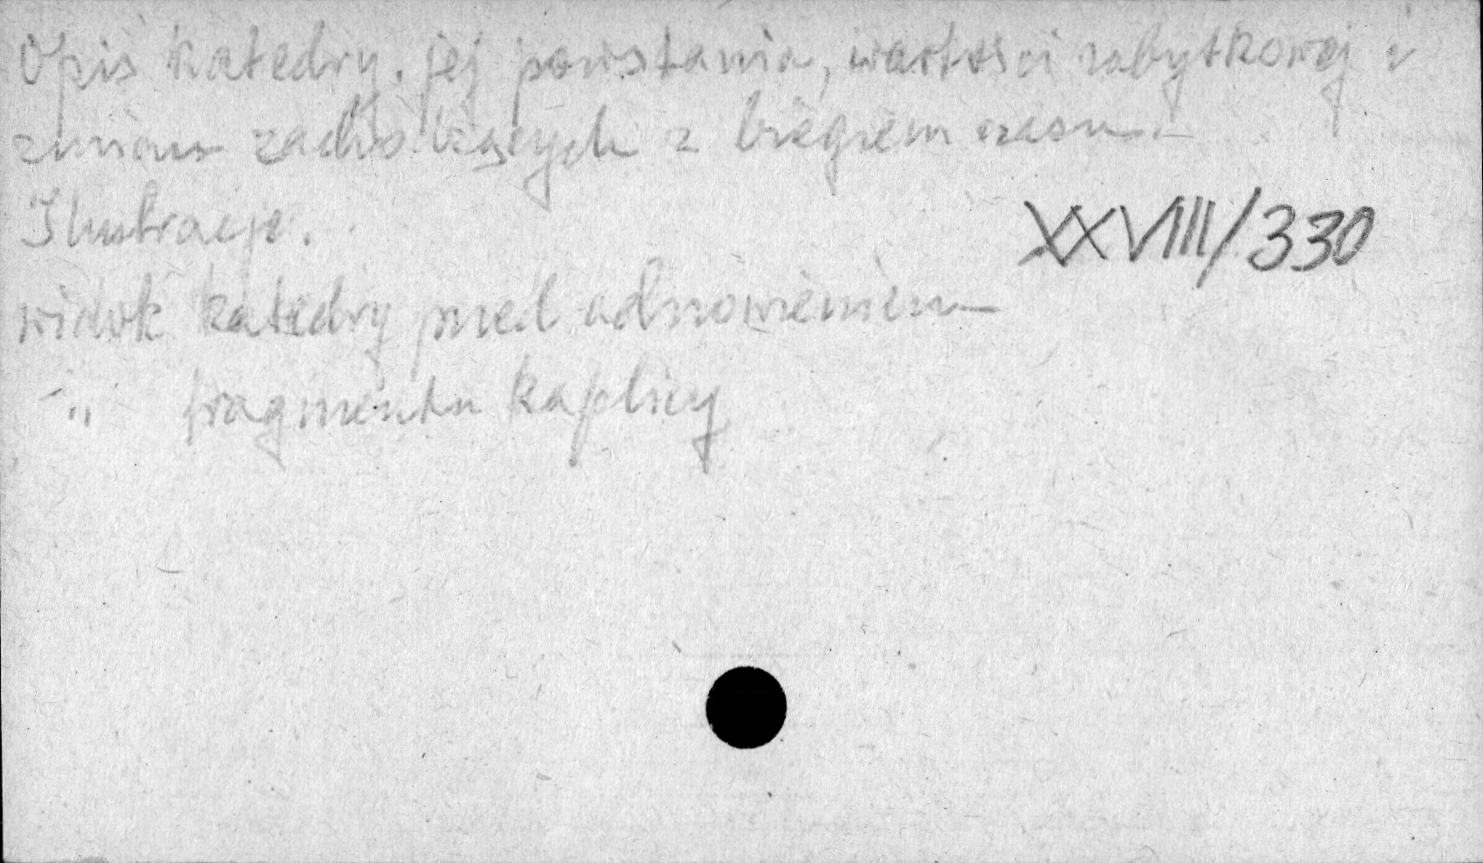 Opis katedry, jej powstania, wartości zabytkowej i
zmian zachodzących z biegiem czasu.
Ilustracje.
XXVIII/330
widok katedry przed odnowieniem
" fragmentu kaplicy